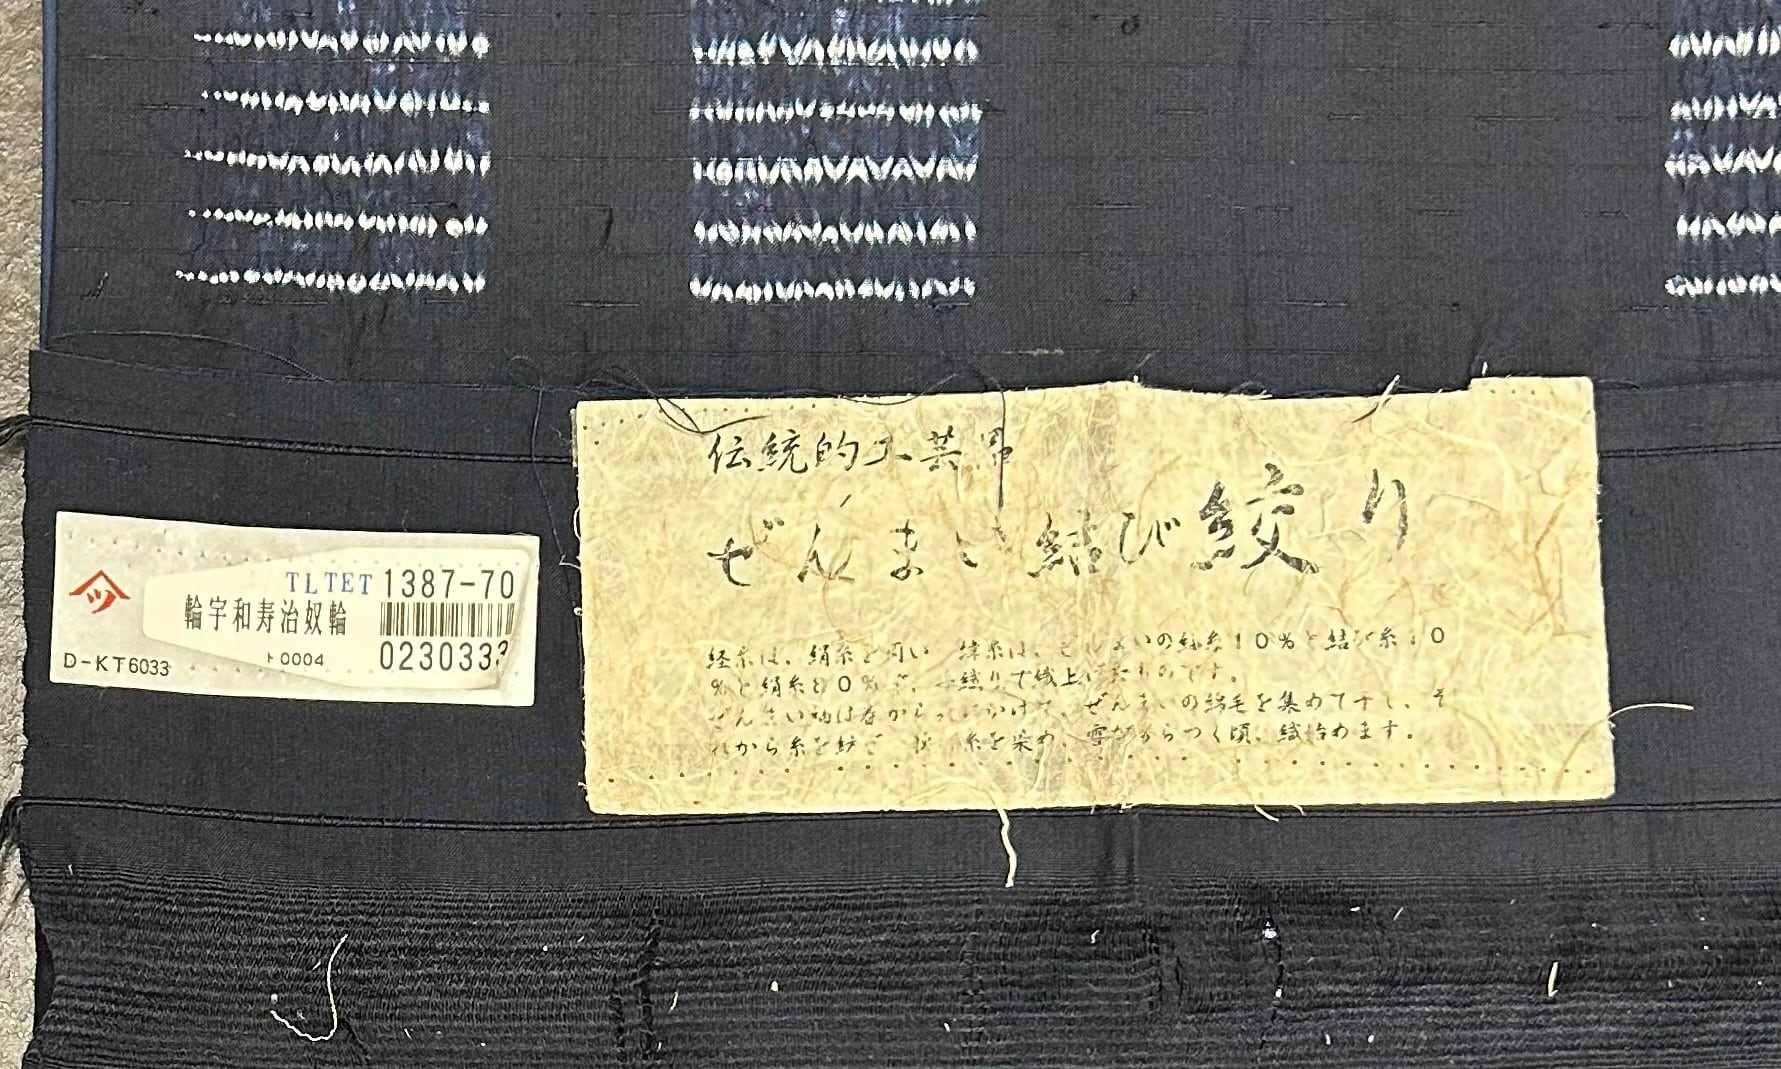 伝統的工芸品
ぜんまい結び絞り
経糸は、絹糸を用い 緯糸は、ぜんまいの綿糸10%と結び糸10
%と絹糸80%で、手織りで織上げたものです。
ぜんまい紬は春から にかけて、ぜんまいの綿毛を集めて干し、そ
れから糸を紡ぎ 糸を染め、雪がちらつく頃、織始めます。
ツ
TLTET 1387-70
輪宇和寿治奴輪
ト0004
023033
D-KT6033